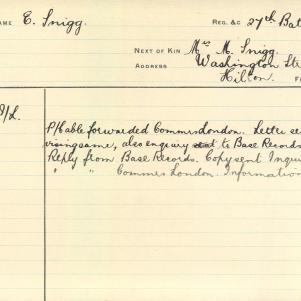 AME E. Snigg. REG. &C 27th Bat
NEXT OF KIN Mrs M. Snigg.
ADDRESS Washington Stre
Hilton.
P/Cable forwarded Commrs London. Letter se
vising same, also enquiry sent to Base Records
Reply from Base Records. Copy sent Inqui
" " Commrs London. Information